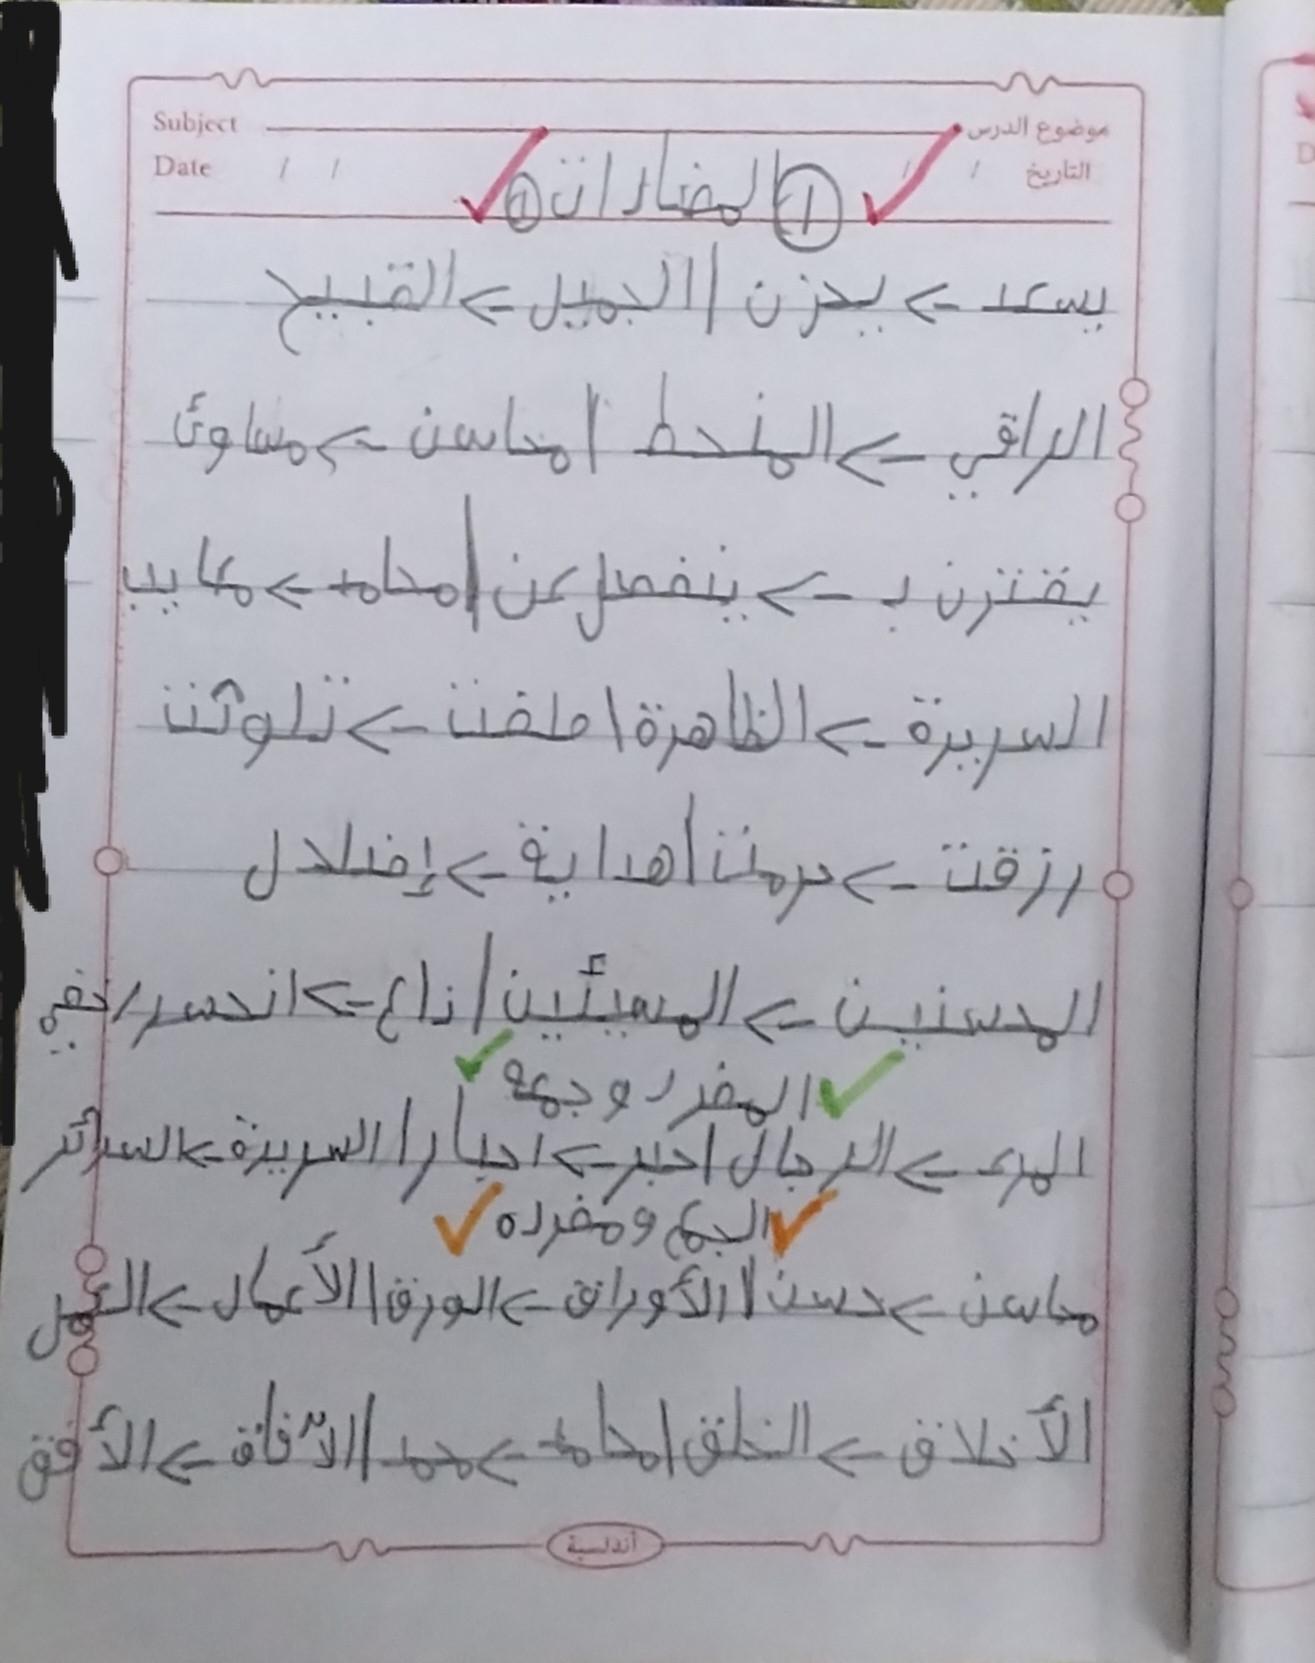 Subject موضوع الدرس
Date / / التاريخ / /
① المضادات ①
يسعد -> يحزن | الجميل -> القبيح
الراقي -> المنحط | محاسن -> مساوئ
يقترن بـ -> ينفصل عن | محامد -> معايب
السريرة -> الظاهرة | صفت -> تلوثت
رزقت -> حرمت | هداية -> إضلال
المحسنين -> المسيئين | ذاع -> انحسر / خفي
المفرد وجمعه
المرء -> الرجال | حبر -> احبار | السريرة -> السرائر
الجمع ومفرده
محاسن -> حسن | الأوراق -> الورق | الأعمال -> العمل
الأخلاق -> الخلق | محامد -> حمد | الآفاق -> الأفق
أندلسية